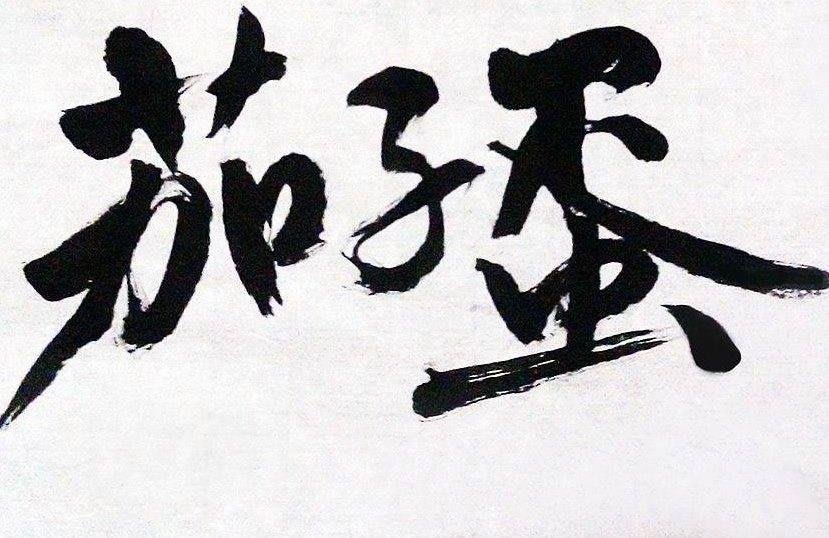 茄子蛋